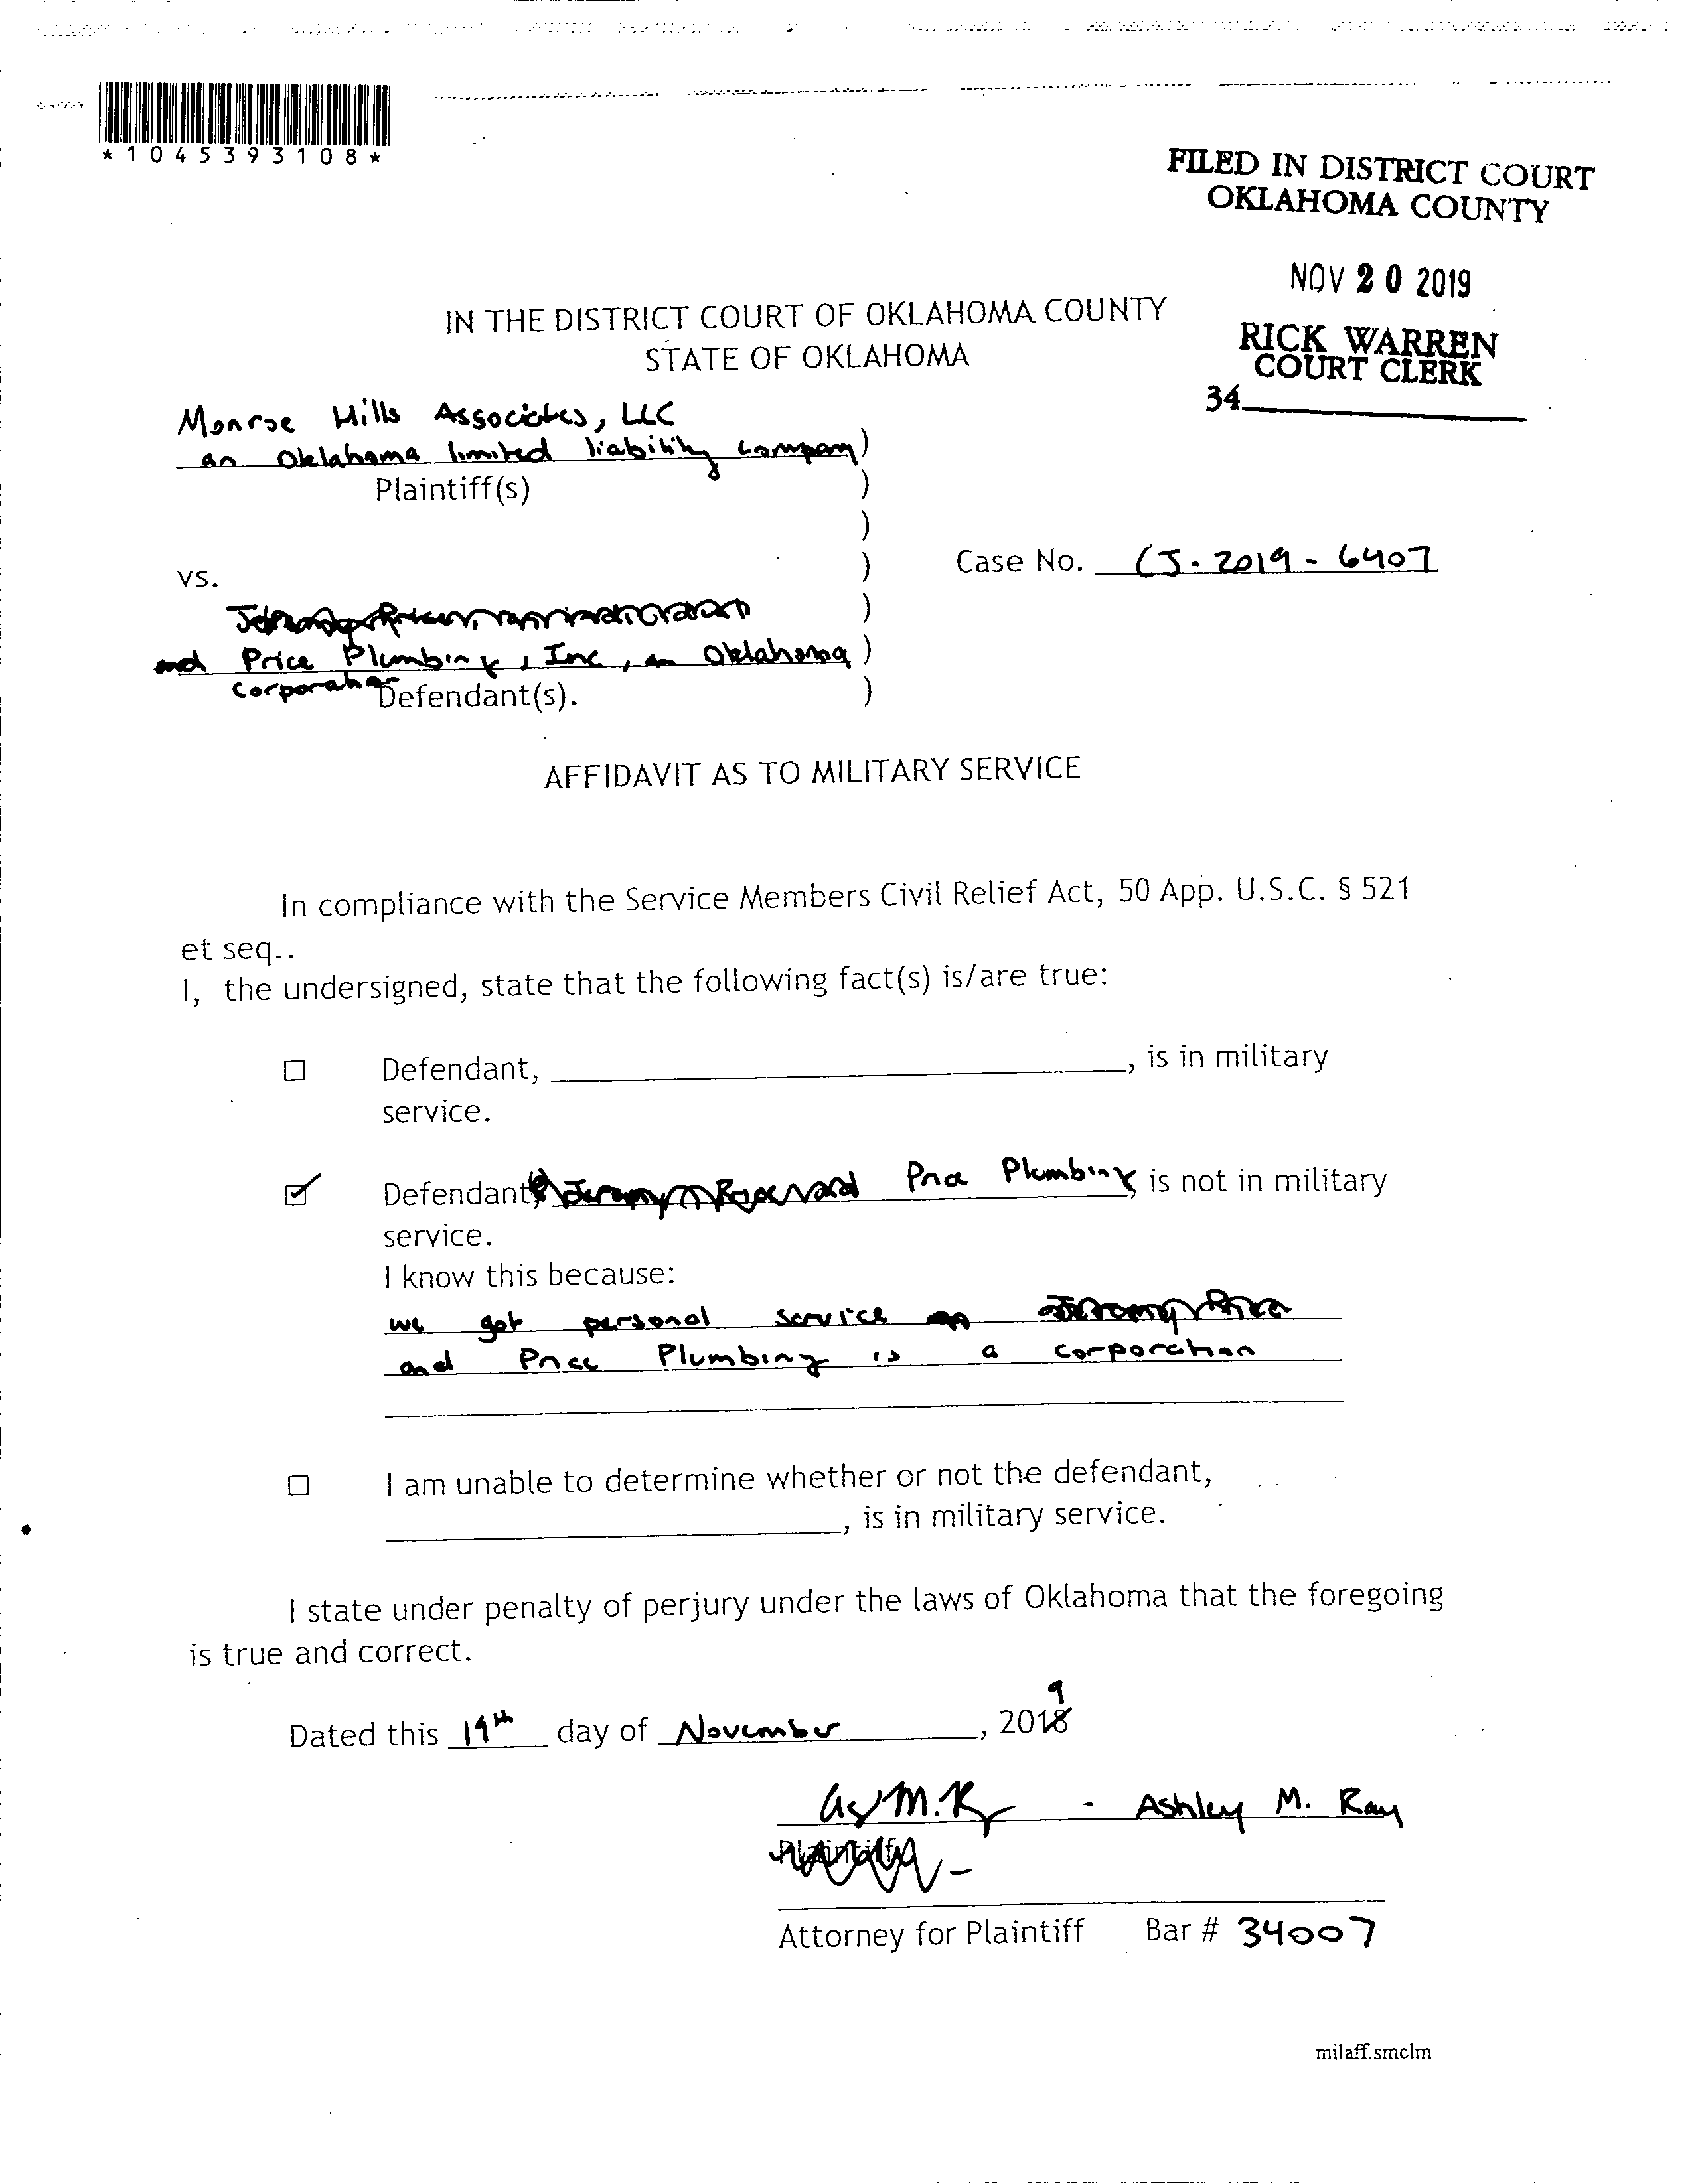 *1045393108*
FILED IN DISTRICT COURT
OKLAHOMA COUNTY
NOV 20 2019
RICK WARREN
COURT CLERK
34
IN THE DISTRICT COURT OF OKLAHOMA COUNTY
STATE OF OKLAHOMA
Monroe Hills Associates, LLC
an Oklahoma limited liability company )
Plaintiff(s) )
)
vs. )
)
and Price Plumbing, Inc, an Oklahoma )
corporation
Defendant(s). )
Case No. CJ-2019-6407
AFFIDAVIT AS TO MILITARY SERVICE
In compliance with the Service Members Civil Relief Act, 50 App. U.S.C. § 521
et seq..
I, the undersigned, state that the following fact(s) is/are true:
☐ Defendant, , is in military
service.
☑ Defendant, Price Plumbing, is not in military
service.
I know this because:
we got personal service
and Price Plumbing is a corporation
☐ I am unable to determine whether or not the defendant,
, is in military service.
I state under penalty of perjury under the laws of Oklahoma that the foregoing
is true and correct.
Dated this 19th day of November, 2019
- Ashley M. Ray
Plaintiff
Attorney for Plaintiff Bar # 34007
milaff.smclm